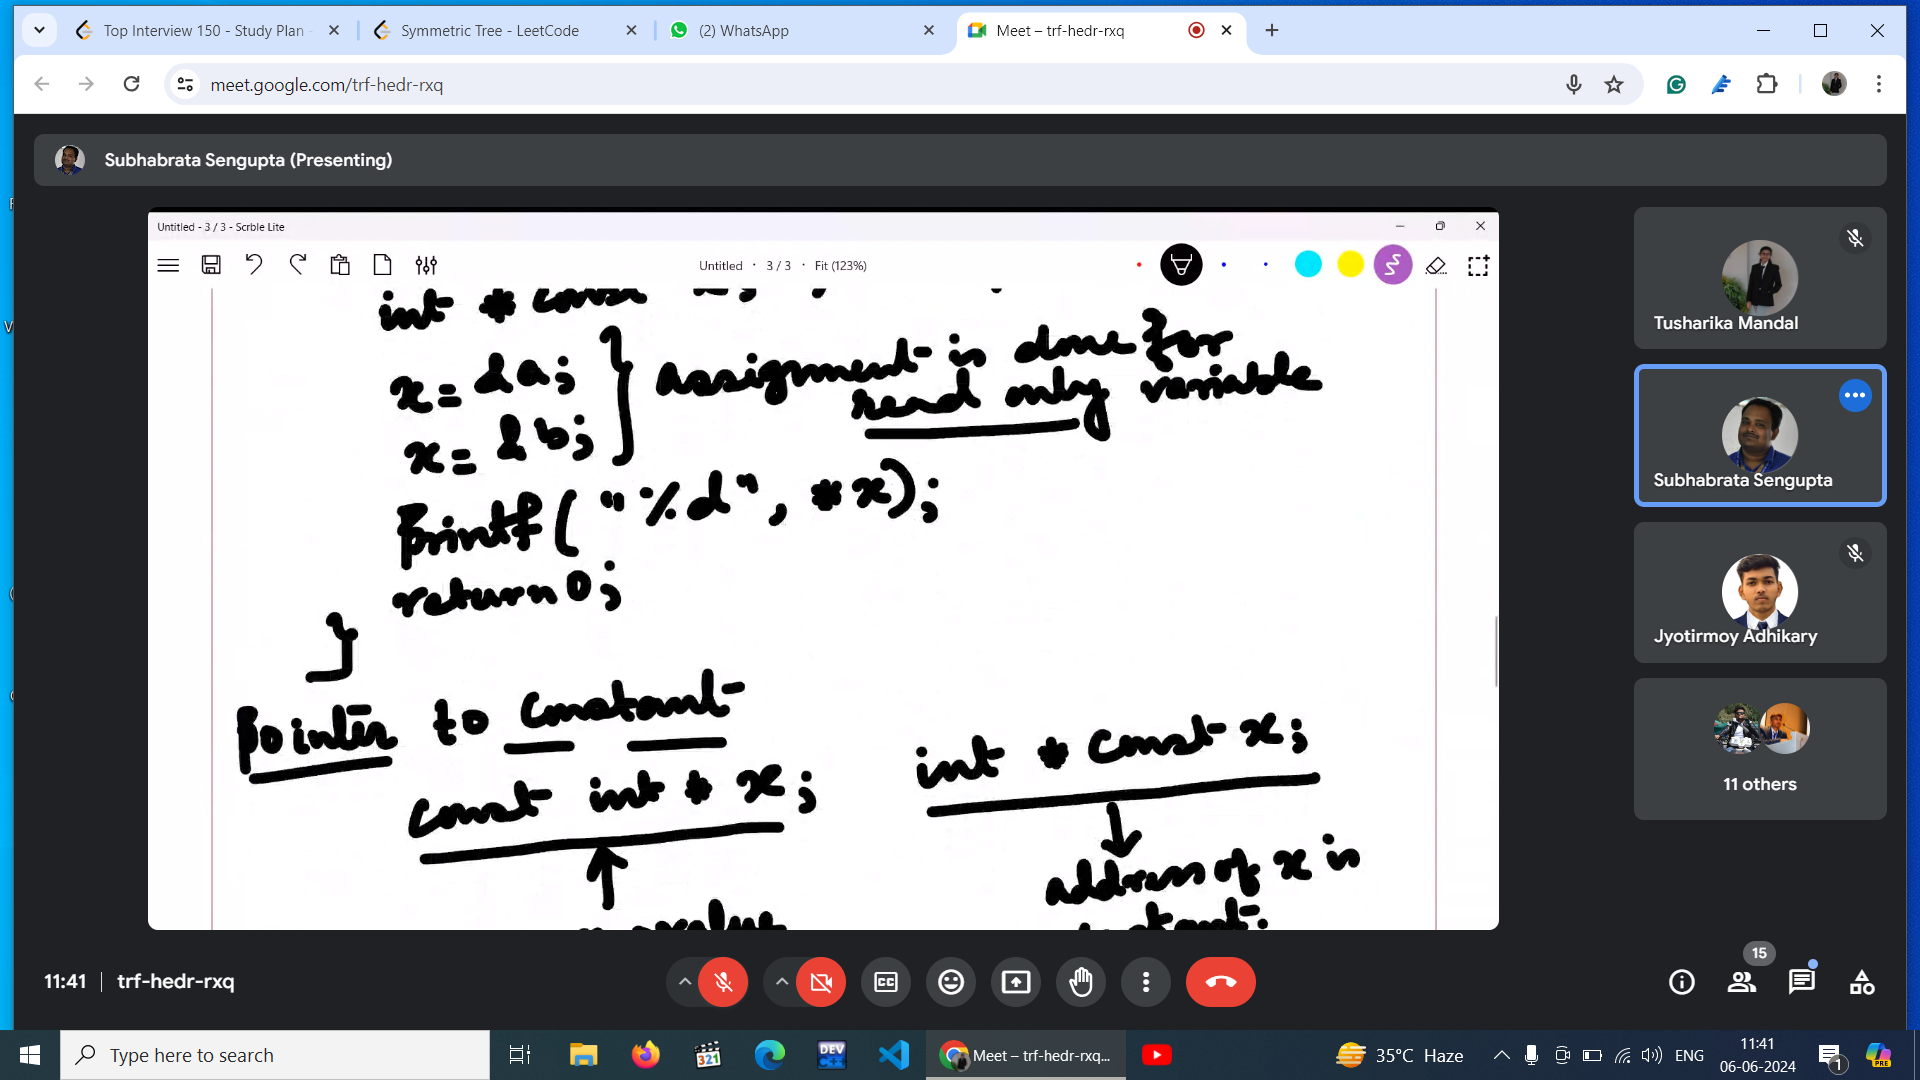 Top Interview 150 - Study Plan
Symmetric Tree - LeetCode
(2) WhatsApp
Meet – trf-hedr-rxq
meet.google.com/trf-hedr-rxq
Subhabrata Sengupta (Presenting)
Untitled - 3 / 3 - Scrble Lite
Untitled · 3 / 3 · Fit (123%)
int * const
x = &a; } assignment is done for
read only variable
x = &b;
printf("%d", *x);
return 0;
}
Pointer to constant
const int * x;
int * const x;
address of x is
value
Tusharika Mandal
Subhabrata Sengupta
Jyotirmoy Adhikary
11 others
11:41 | trf-hedr-rxq
15
Type here to search
321
DEV C++
Meet – trf-hedr-rxq...
35°C Haze
ENG
11:41
06-06-2024
1
PRE